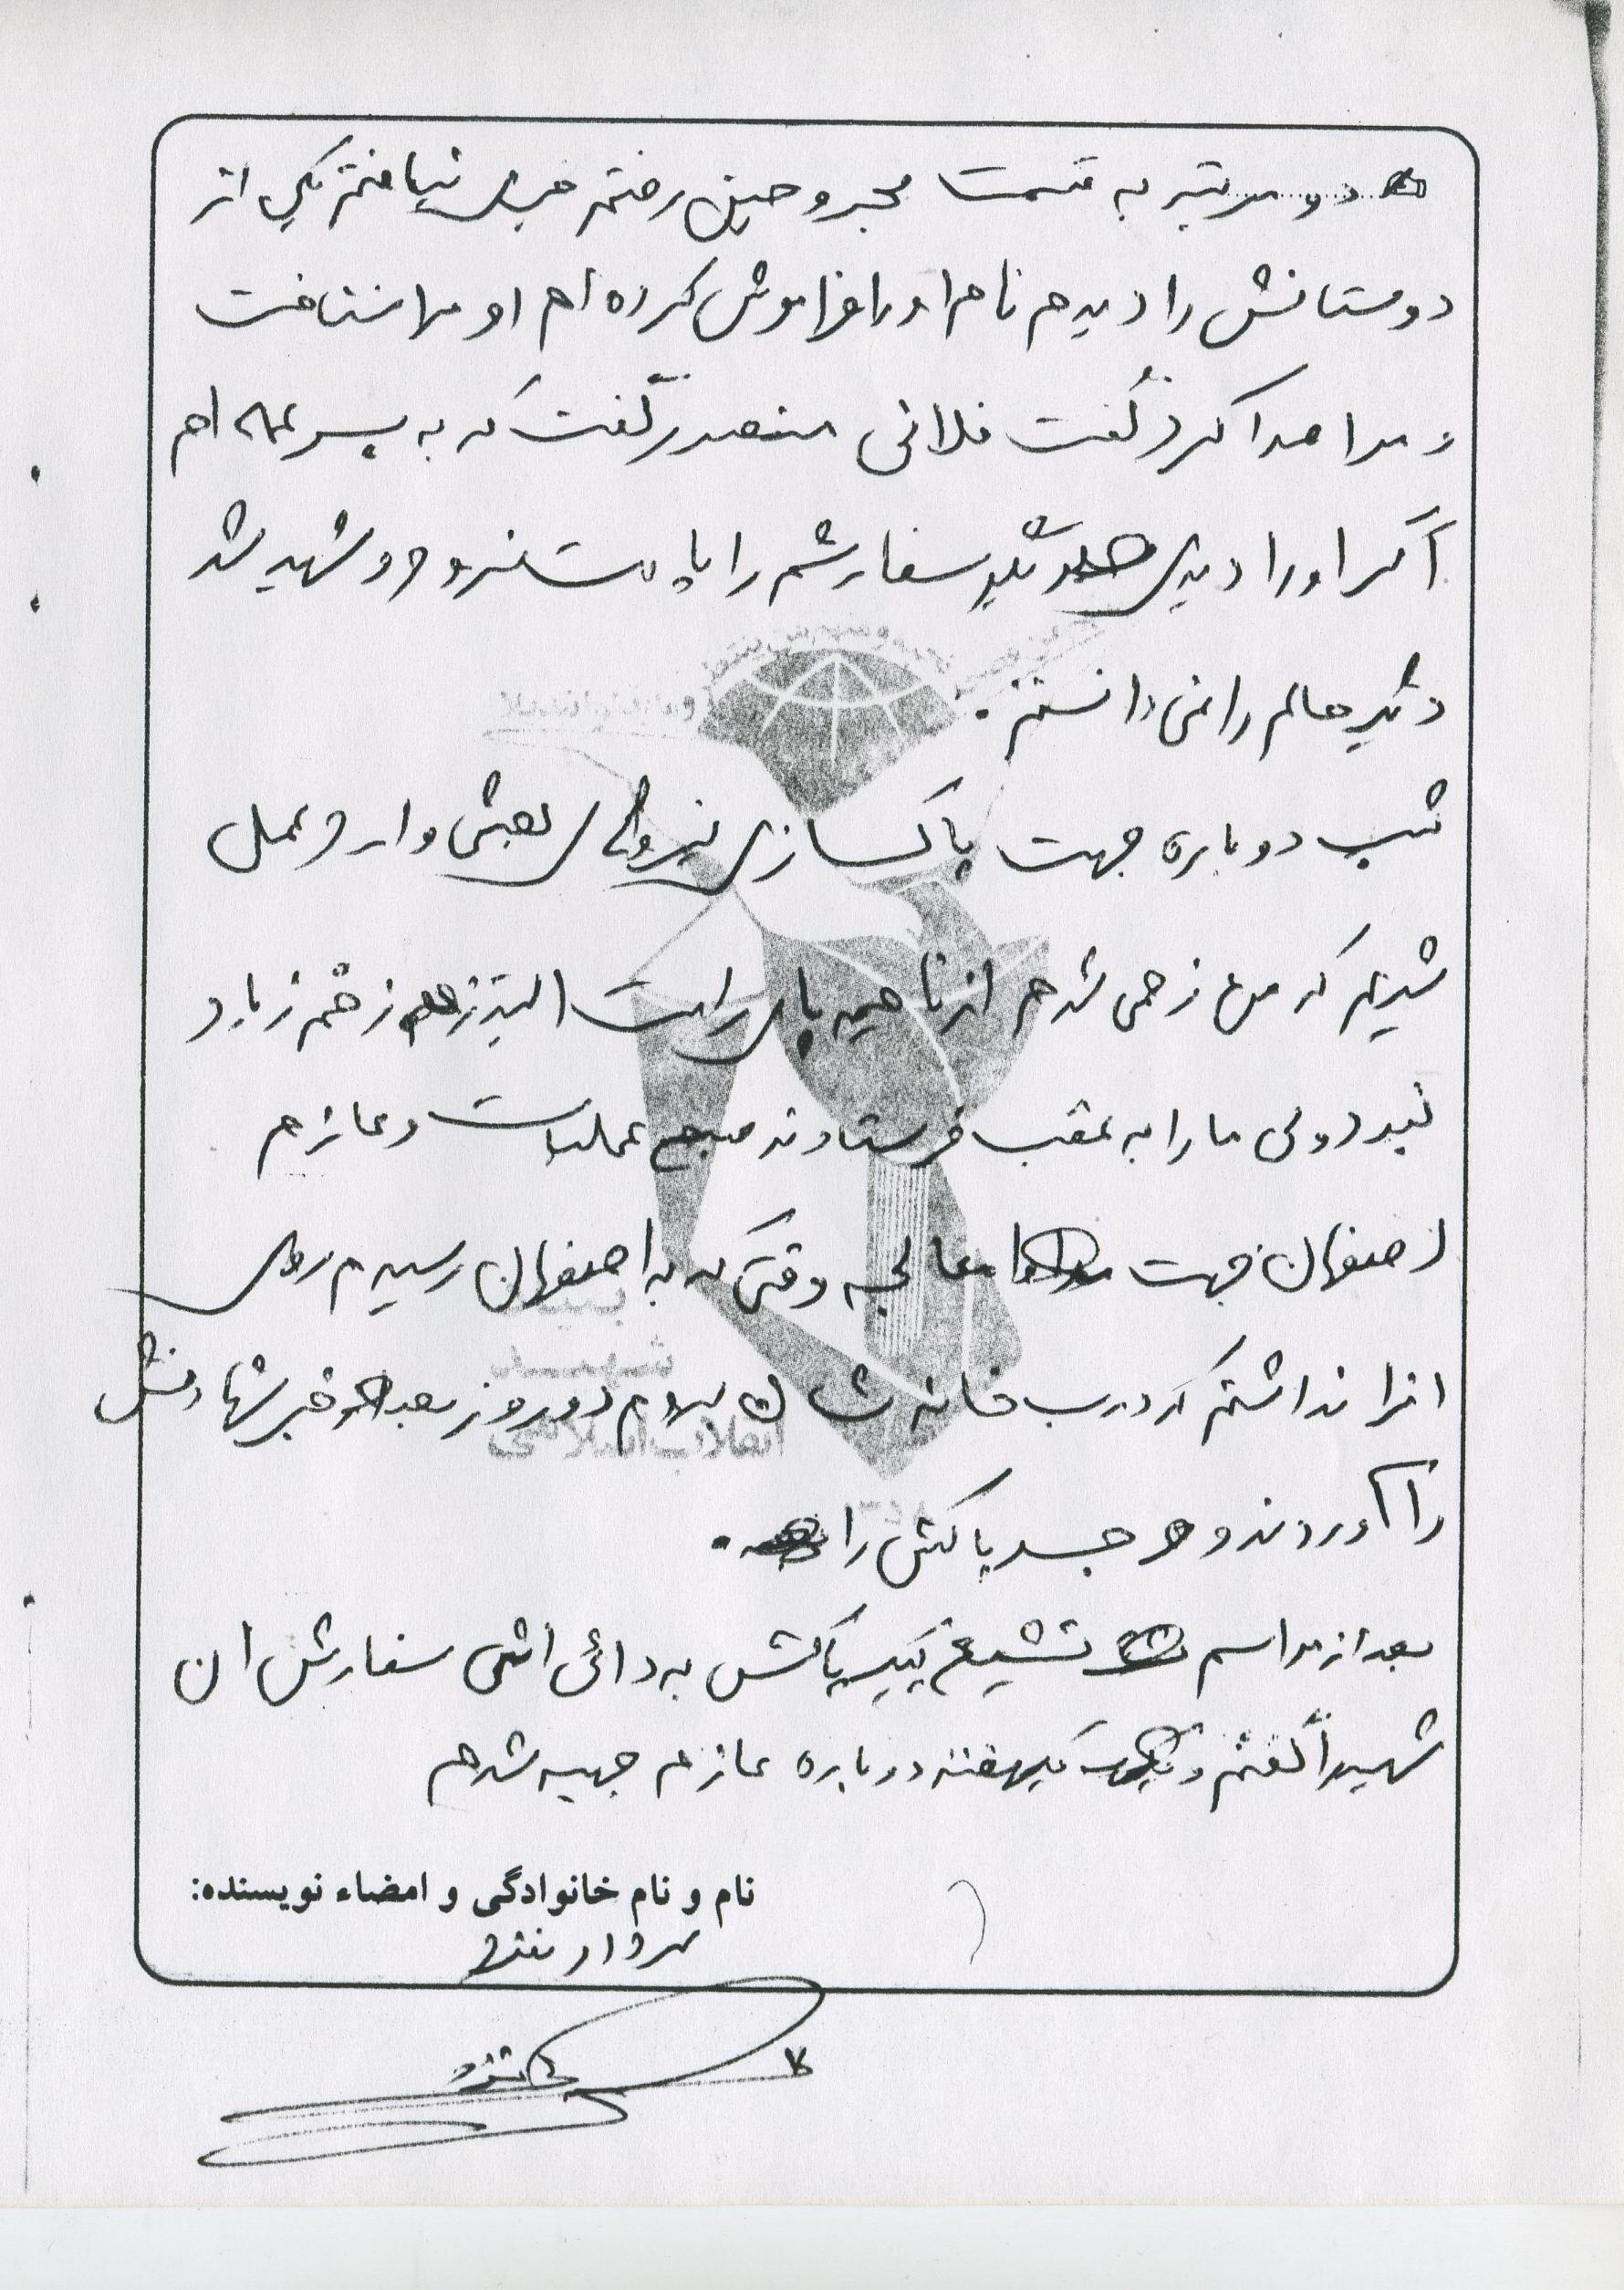 دو مرتبه به قسمت مجروحین رفتم خبری نیافتم یکی از
دوستانش را دیدم نام او را فراموش کرده ام او مرا شناخت
و مرا صدا کرد گفت فلانی منصور گفت که به پسر عمه ام
اگر او را دیدی بگو سفارشم را و شهید شد
دیگر حالم را نمی دانستم.
شب دوباره جهت پاکسازی نیروهای بعثی وارد عمل
شدیم که من زخمی شدم از ناحیه پای راست البته زخم زیاد
نبود ولی ما را به عقب فرستادند صبح عملیات و عازم
اصفهان جهت معالجه وقتی که به اصفهان رسیدم روی
انرا نداشتم که درب خانه شان بروم دو روز بعد خبر شهادتش
را آوردند و جسد پاکش را.
بعد از مراسم تشییع پیکر پاکش به دائی اش سفارش ان
شهید را گفتم و یکهفته دوباره عازم جبهه شدم
نام و نام خانوادگی و امضاء نویسنده:
انقلاب اسلامی